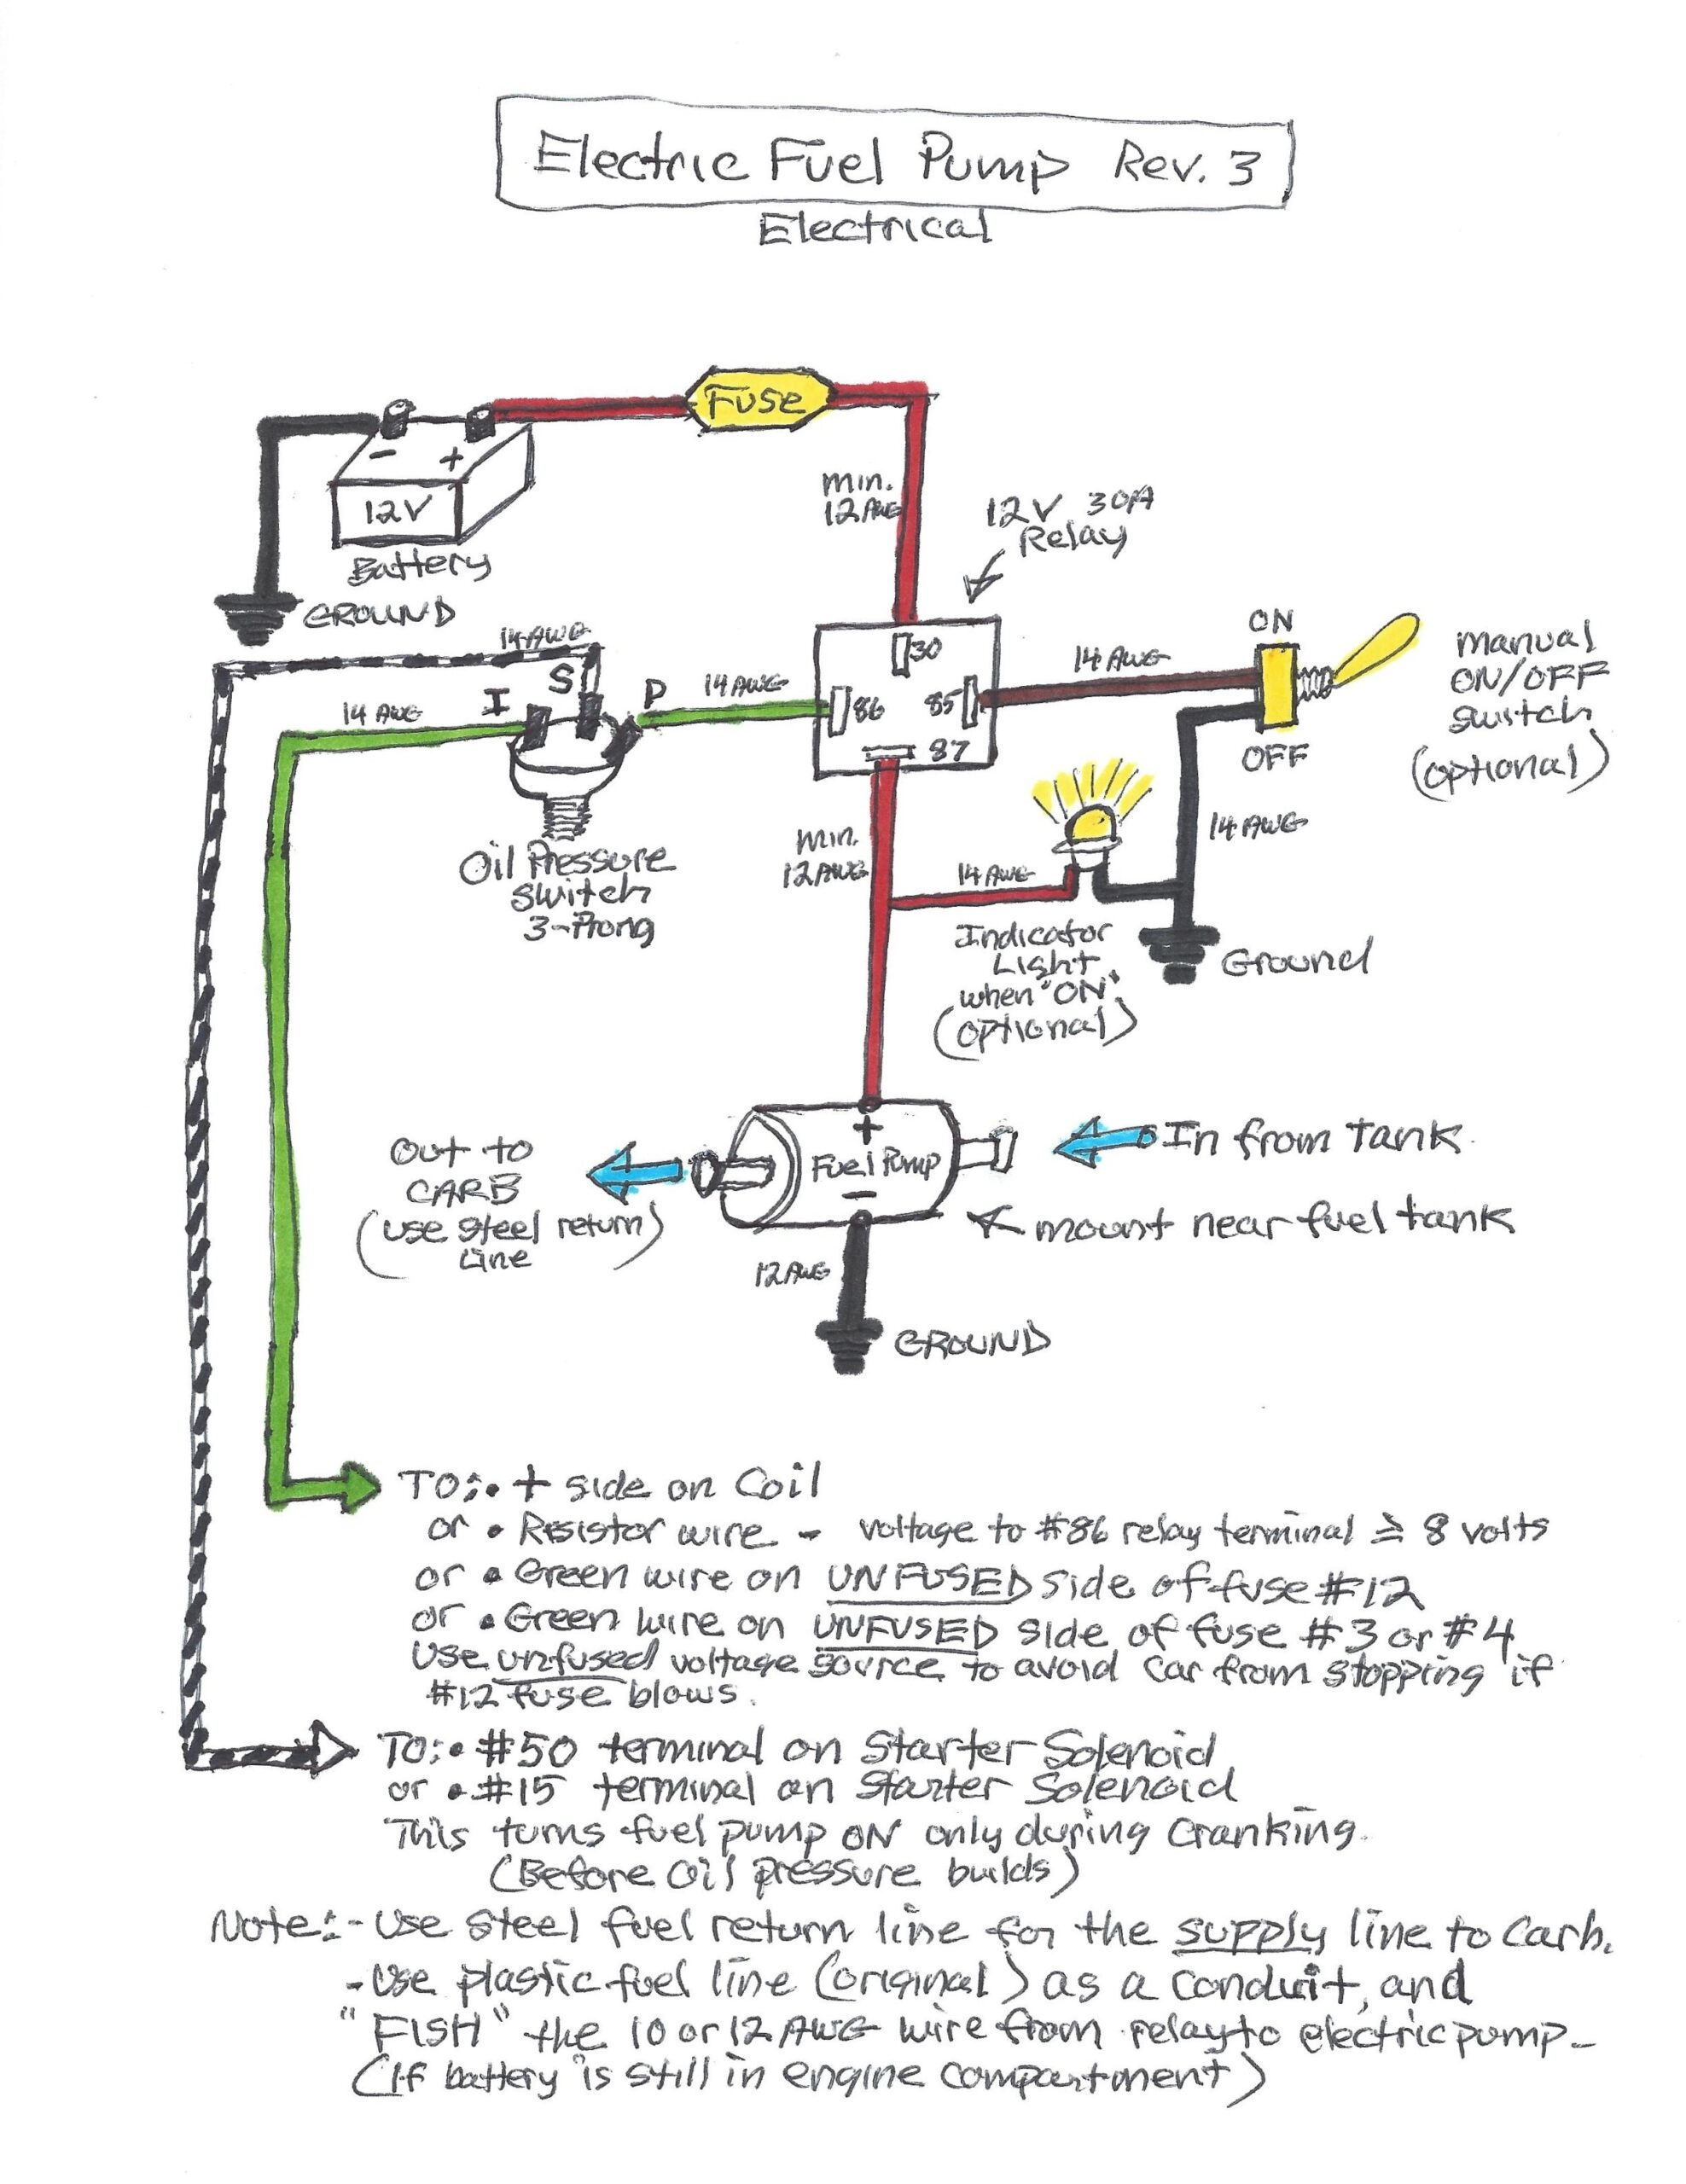 Electric Fuel Pump Rev. 3
Electrical
Fuse
min.
12 AWG
12V 30A
Relay
- +
12V
Battery
GROUND
14 AWG
S
I
P
14 AWG
14 AWG
30
86
85
87
14 AWG
ON
OFF
manual
ON/OFF
switch
(optional)
14 AWG
Oil Pressure
switch
3-Prong
min.
12 AWG
14 AWG
Indicator
Light
when "ON"
(optional)
Ground
Out to
CARB
(use steel return)
Line
+
Fuel Pump
-
In from tank
mount near fuel tank
12 AWG
GROUND
TO:• + side on Coil
or • Resistor wire - voltage to #86 relay terminal ≥ 8 volts
or • Green wire on UNFUSED side of fuse #12
or • Green wire on UNFUSED side of fuse #3 or #4
Use unfused voltage source to avoid car from stopping if
#12 fuse blows.
TO:• #50 terminal on Starter Solenoid
or • #15 terminal on Starter Solenoid
This turns fuel pump ON only during Cranking.
(Before oil pressure builds)
Note:- Use steel fuel return line for the supply line to Carb.
- Use plastic fuel line (original) as a conduit, and
"FISH" the 10 or 12 AWG wire from relay to electric pump-
(If battery is still in engine compartment)